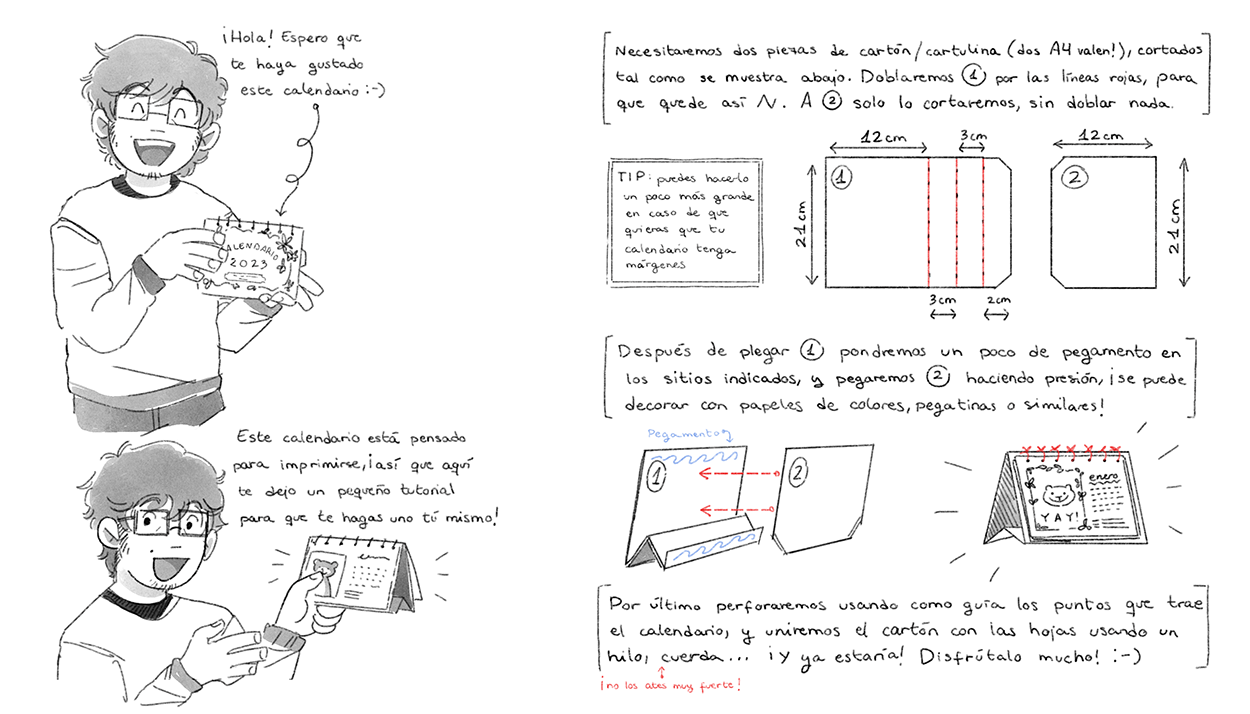 ¡Hola! Espero que
te haya gustado
este calendario :-)
CALENDARIO
2023
Este calendario está pensado
para imprimirse, ¡así que aquí
te dejo un pequeño tutorial
para que te hagas uno tú mismo!
enero
Necesitaremos dos piezas de cartón/cartulina (dos A4 valen!), cortados
tal como se muestra abajo. Doblaremos 1 por las líneas rojas, para
que quede así N. A 2 solo lo cortaremos, sin doblar nada.
TIP: puedes hacerlo
un poco más grande
en caso de que
quieras que tu
calendario tenga
márgenes
12cm
3cm
12cm
1
2
21cm
21cm
3cm
2cm
Después de plegar 1 pondremos un poco de pegamento en
los sitios indicados, y pegaremos 2 haciendo presión, ¡se puede
decorar con papeles de colores, pegatinas o similares!
Pegamento
1
2
enero
YAY!
Por último perforaremos usando como guía los puntos que trae
el calendario, y uniremos el cartón con las hojas usando un
hilo, cuerda... ¡Y ya estaría! Disfrútalo mucho! :-)
¡no los ates muy fuerte!